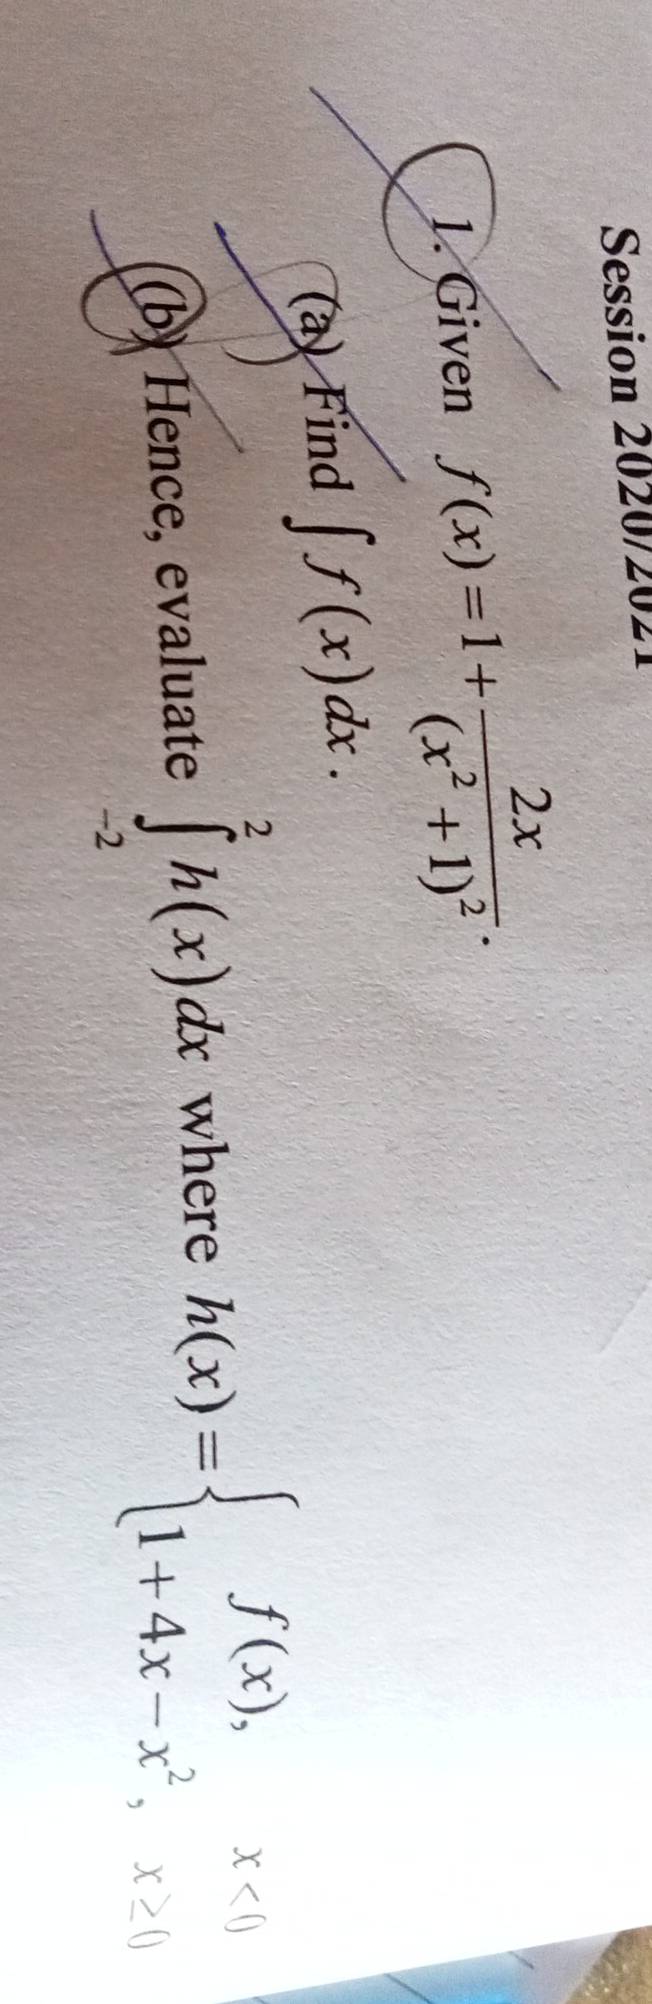 Session 2020/2021
1. Given f(x) = 1 + 2x/(x² + 1)².
(a) Find ∫ f(x) dx.
(b) Hence, evaluate ∫₋₂² h(x) dx where h(x) = { f(x), x < 0
1 + 4x − x², x ≥ 0